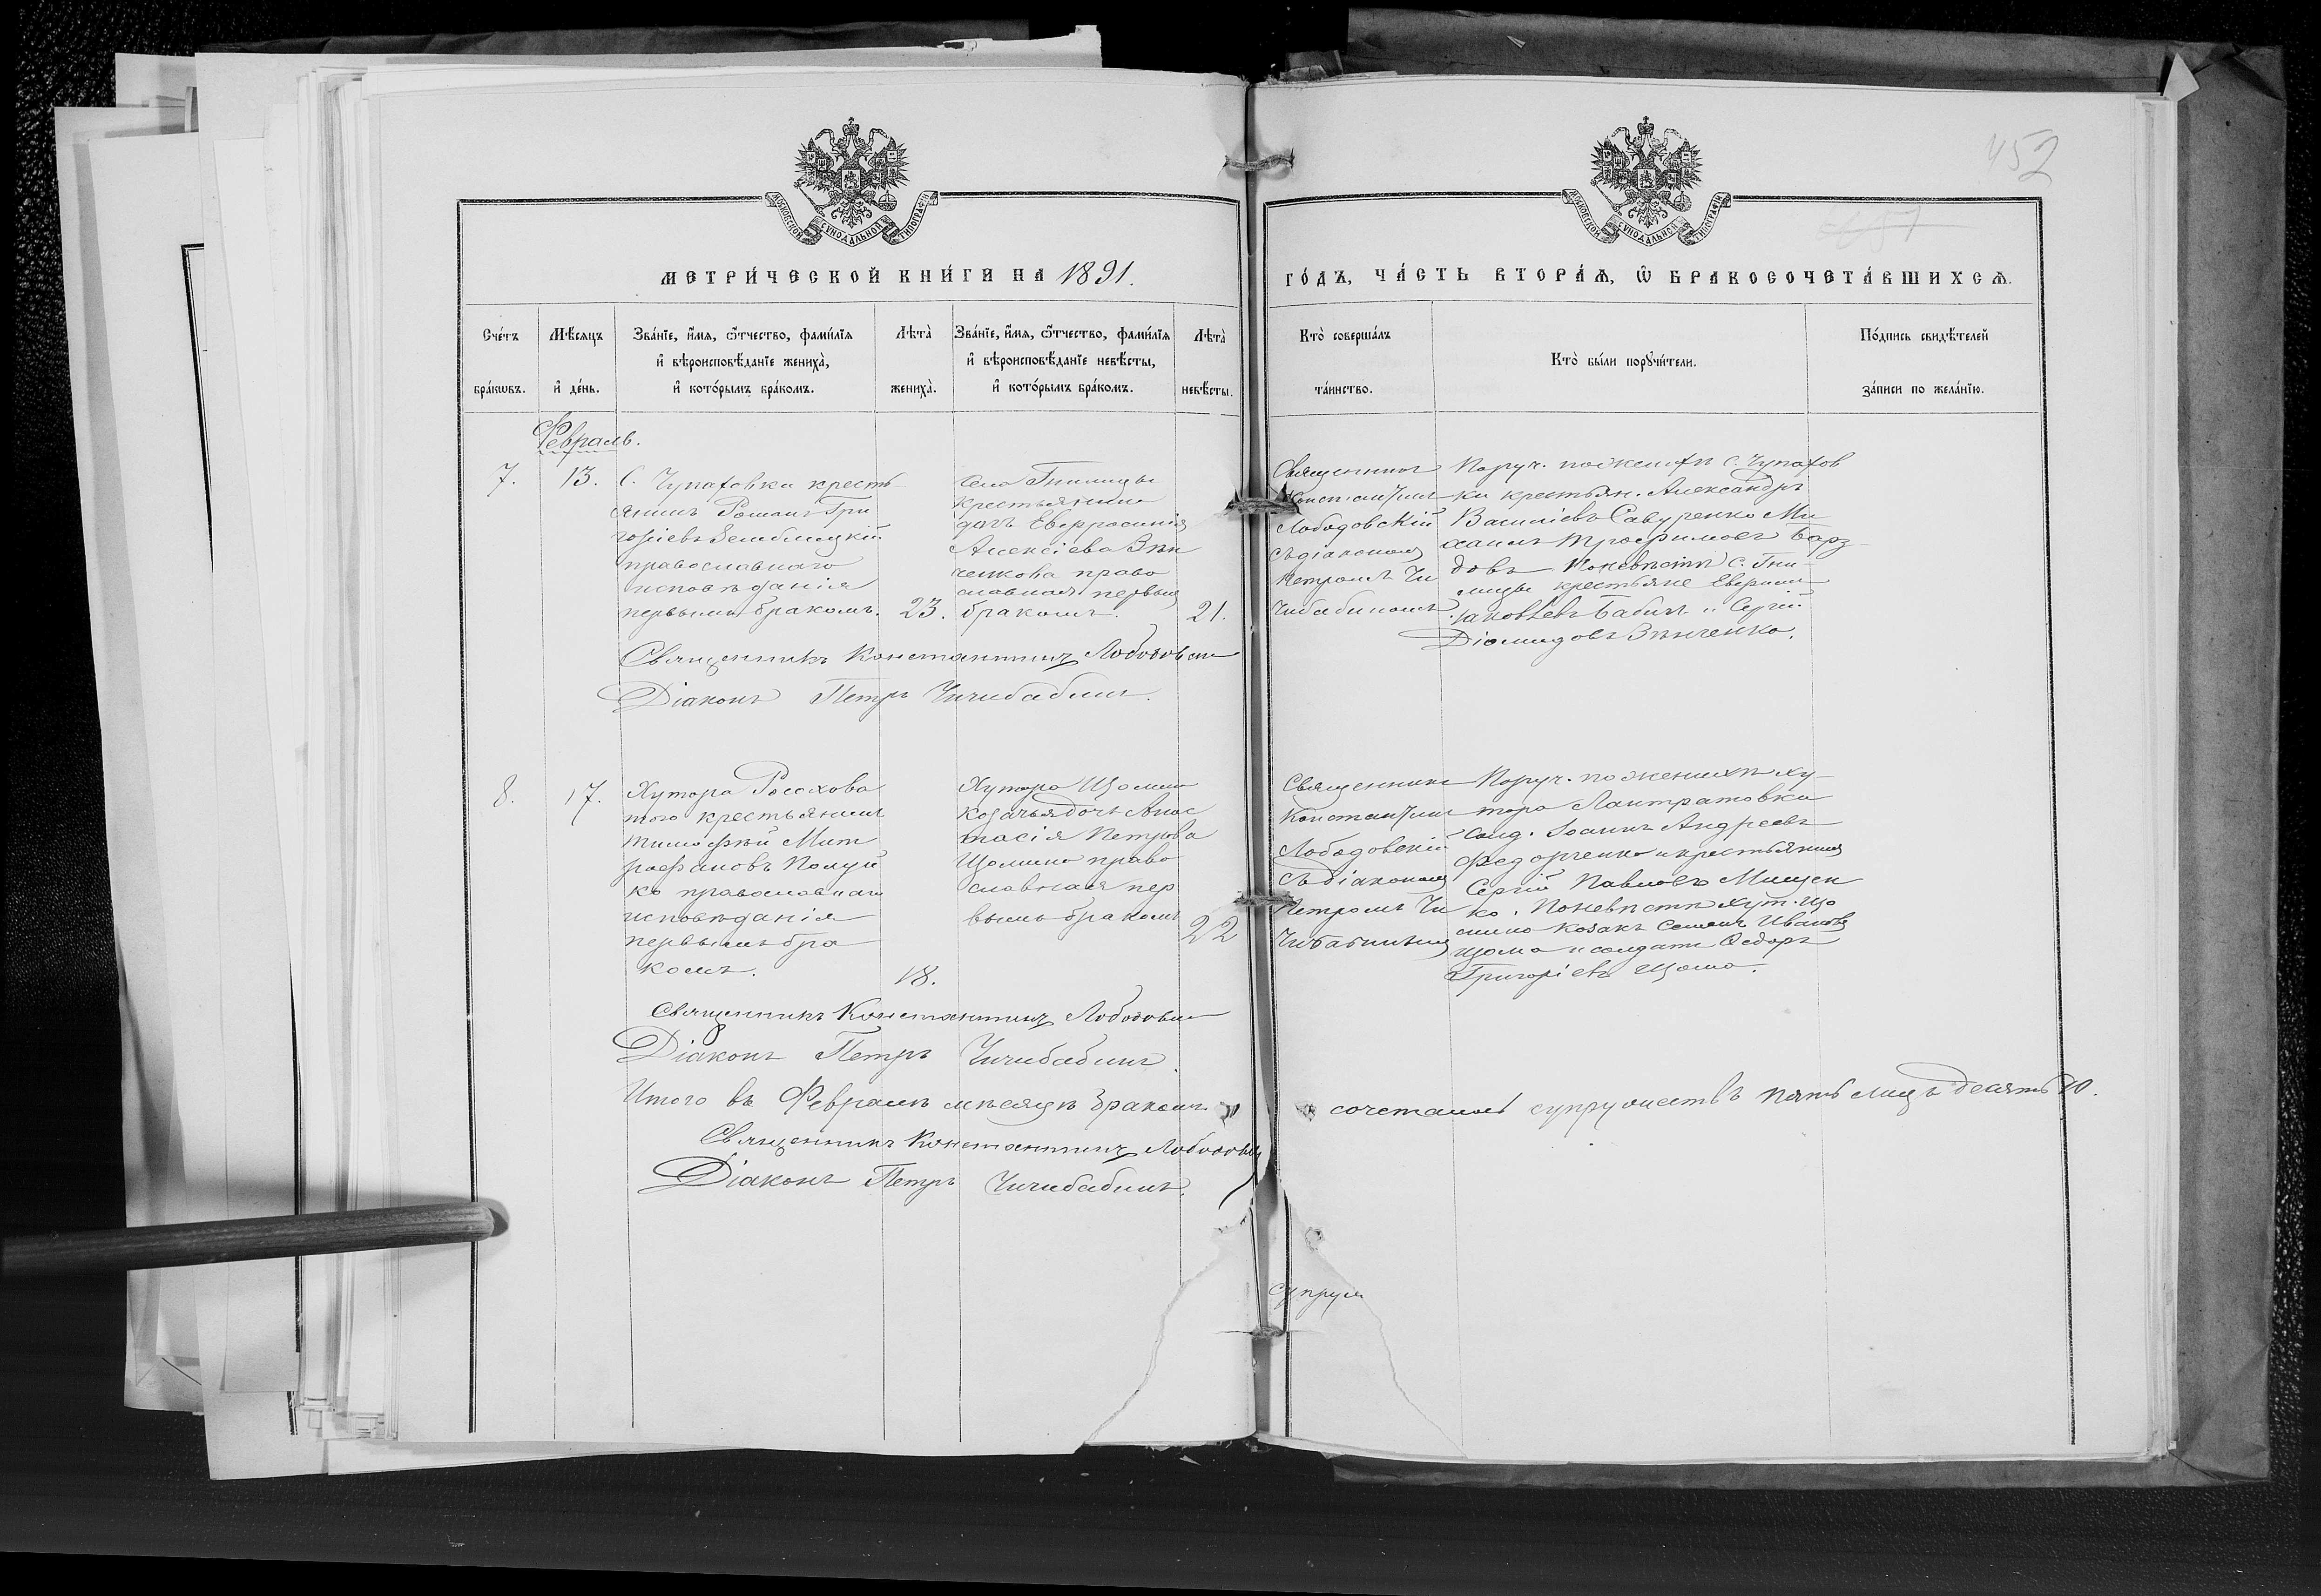 452
МОСКОВСКОЙ СѴНОДАЛЬНОЙ ТИПОГРАФІИ
МОСКОВСКОЙ СѴНОДАЛЬНОЙ ТИПОГРАФІИ
МЕТРИ́ЧЕСКОЙ КНИ́ГИ НА 1891.
ГО́ДЪ, ЧА́СТЬ ВТОРА́Ѧ, Ѿ БРАКОСОЧЕТА́ВШИХСѦ.
Сче́тъ бра́кѡвъ.
Мѣ́сяцъ и҆ де́нь.
Зва́нїе, и҆́мѧ, ѻ҆́тчество, фами́лїѧ
и҆ вѣроисповѣ́данїе жениха̀,
и҆ кото́рымъ бра́комъ.
Лѣта̀ жениха̀.
Зва́нїе, и҆́мѧ, ѻ҆́тчество, фами́лїѧ
и҆ вѣроисповѣ́данїе невѣ́сты,
и҆ кото́рымъ бра́комъ.
Лѣта̀ невѣ́сты.
Кто̀ соверша́лъ
та́инство.
Кто̀ бы́ли порꙋчи́тели.
По́дпись свидѣ́телей
за́писи по жела́нїю.
Февраль.
7.
13.
С. Чупаховки кресть-
янинъ Романъ Гри
горіевъ
православнаго
исповѣданія
первымъ бракомъ.
23.
Села Гнилицы
крестьянина
дочь Евфросинія
Алексіева Зѣн
ченкова право
славная первым
бракомъ.
21.
Священникъ
Константинъ
Лободовскій
съ діакономъ
Петромъ Чи
чибабинымъ
Поруч. по женихѣ с. Чупахов
ки крестьян. Александръ
Василіевъ Савуренко Ми
хаилъ Трофимовъ Барз-
довъ По невѣстѣ с. Гни-
лицы крестьяне Ефрем
Іаковлевъ Бабичъ и Сергій
Діомидовъ Зѣнченко.
Священникъ Константинъ Лободовскі
Діаконъ Петръ Чичибабинъ.
8.
17.
Хутора Росохова
того крестьянинъ
Тимофѣй Мит
рофановъ Полуй
ко православнаго
исповѣданія
первымъ бра
комъ.
18.
Хутора Щомин
Козачья дочь Анас
тасія Петрова
Щомина право
славная пер
вымъ бракомъ
22
Священникъ
Константин
Лободовскій
съ діакономъ
Петромъ Чи
чибабинымъ
Поруч. по женихѣ ху-
тора Лантратовки
солд. Іоаннъ Андреевъ
Федорченко и крестьянин
Сергій Павловъ Мищен
ко. По невѣстѣ хут. Що
мино козакъ Семенъ Ивановъ
Щома и солдатъ Ѳедоръ
Григоріевъ Щома.
Священникъ Константинъ Лободовскі
Діаконъ Петръ Чичибабинъ.
Итого въ Февралѣ мѣсяцѣ бракомъ сочетаных супружествъ пять лицъ десять 10.
Священникъ Константинъ Лободовскі
Діаконъ Петръ Чичибабинъ.
супруж